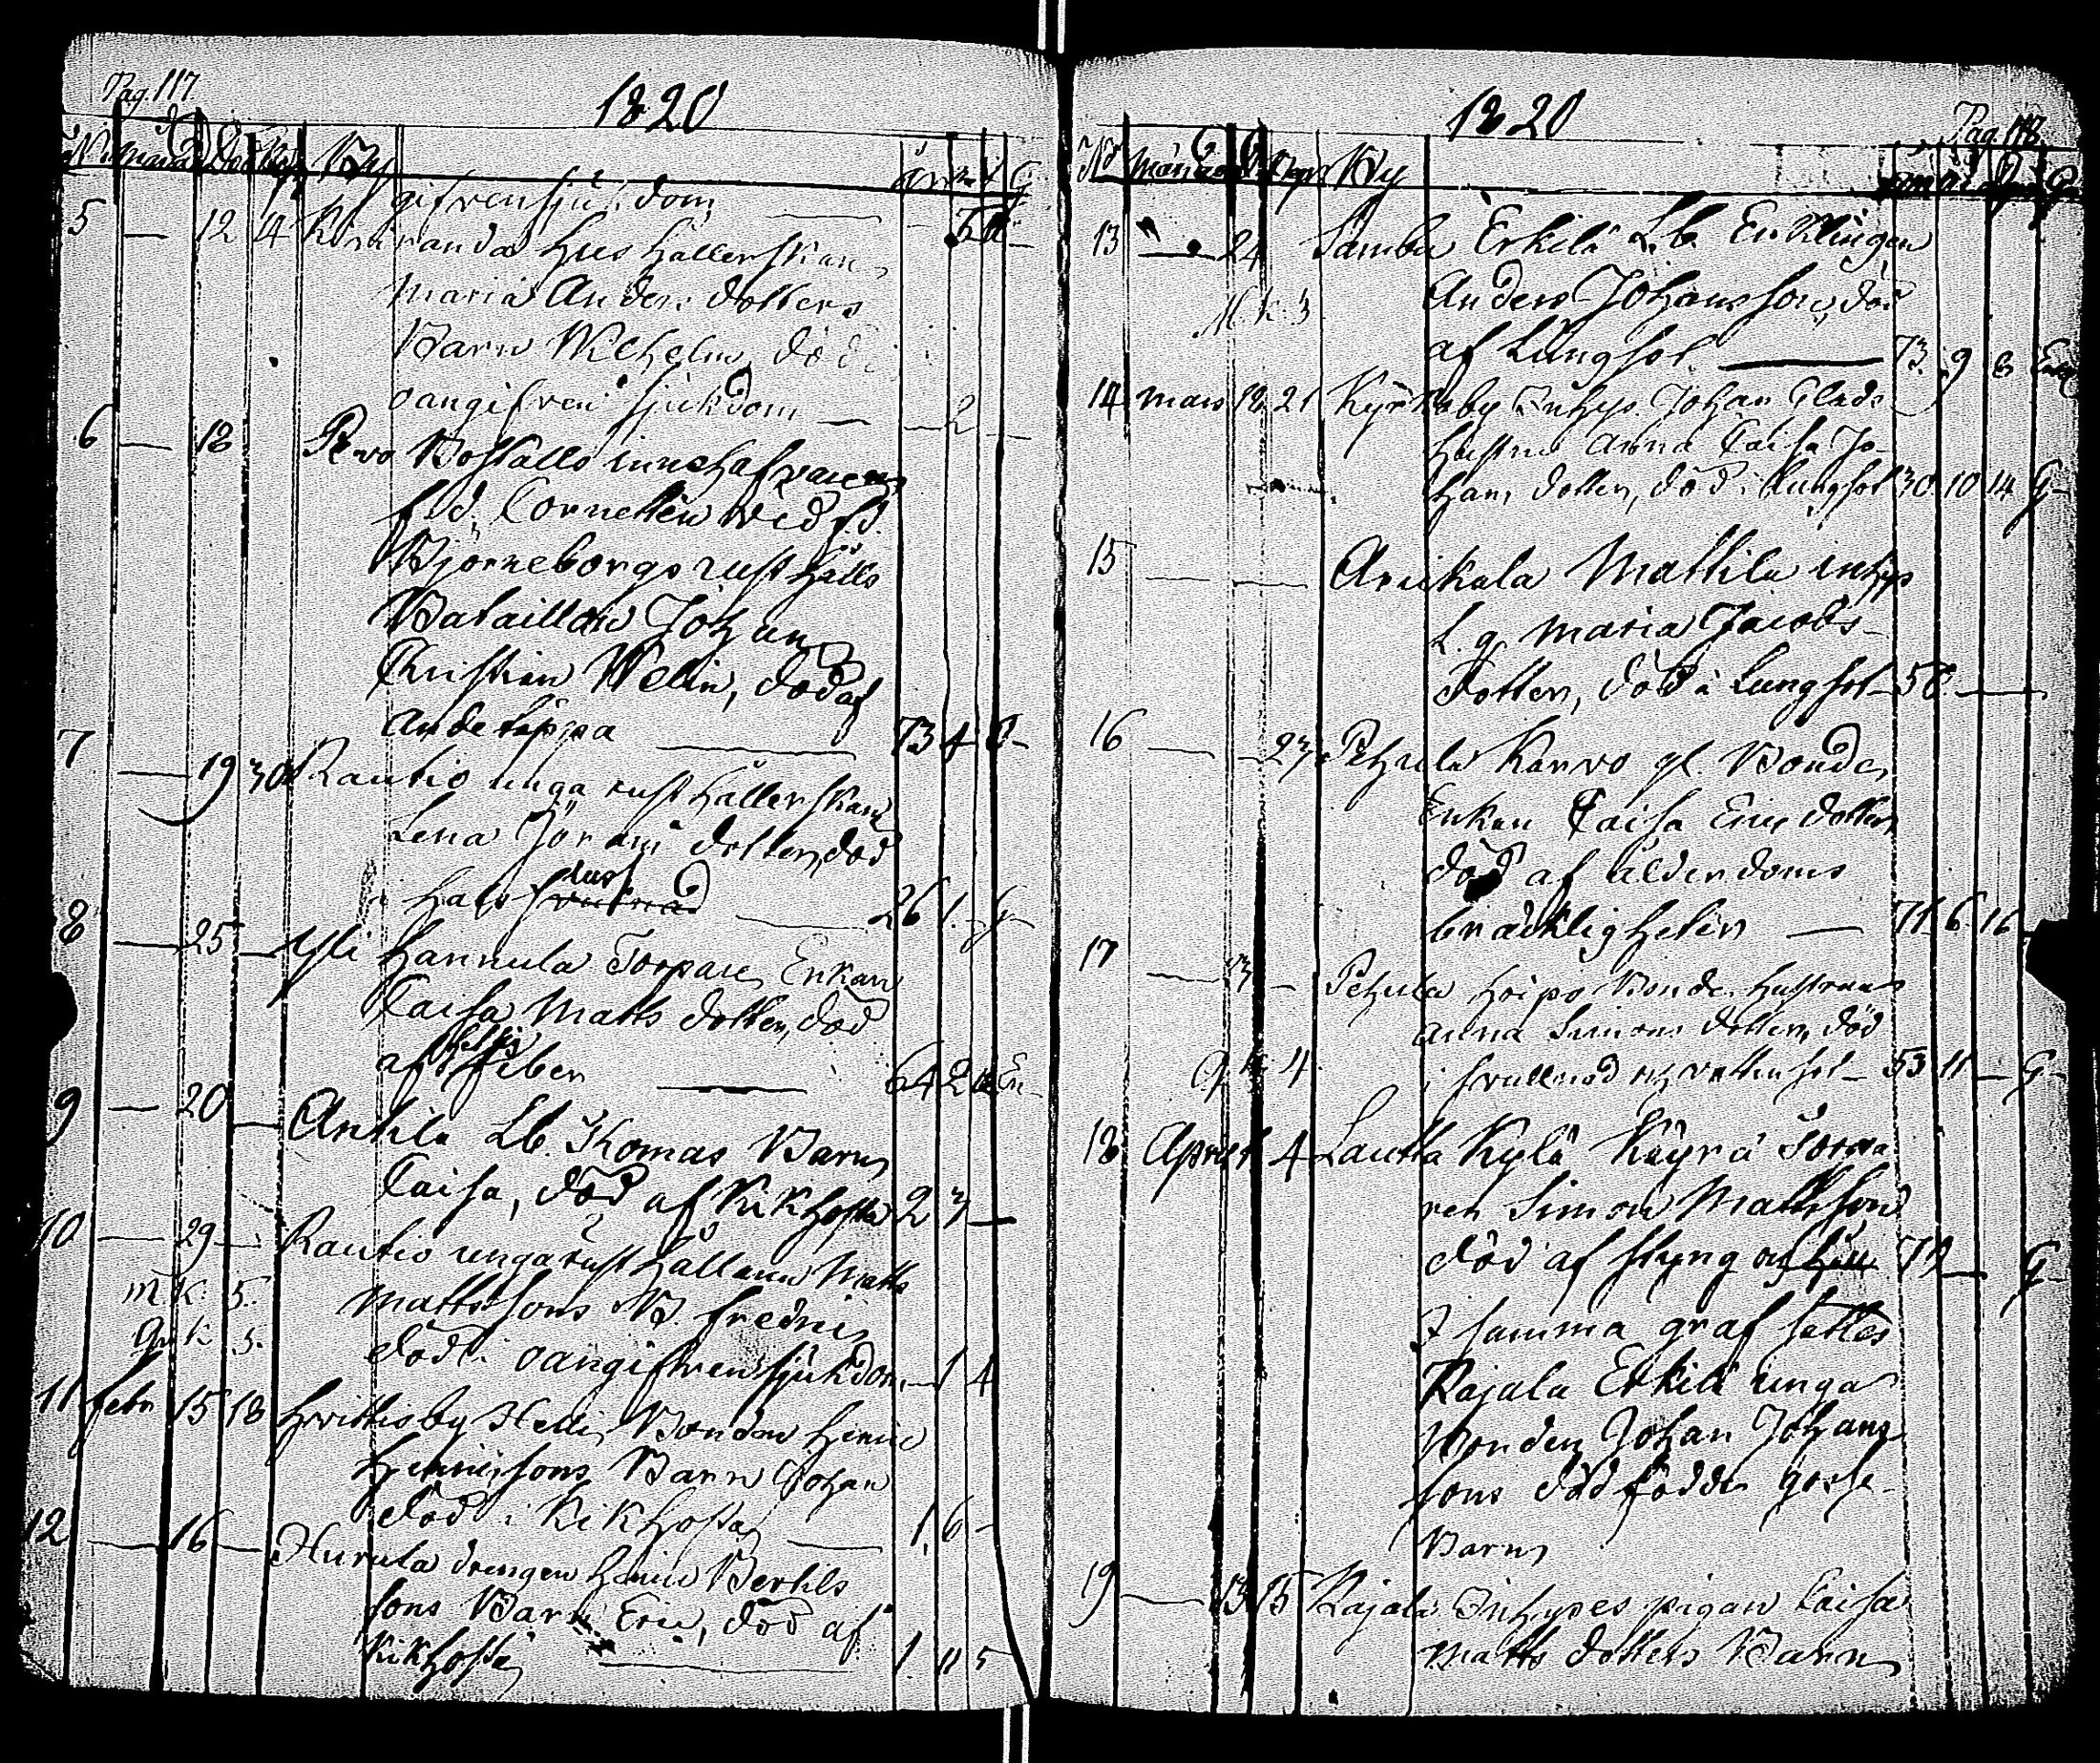 Pag. 117.
1820
By
gifven sjukdom
5 — 12 14 hushållerskan
Maria Anders dotters
Barn Wilhelm, död i
oangifven sjukdom — 2 —
6 — 18 Boställs innehafvaren
f.d. Cornetten wid f.d.
Björneborgs rusthålls
Bataillon Johan
Christian Welin, död af
andtäppa — 73 4 8 —
7 — 19 30 Rautio unga rusthållerskan
Lena Jörans dotter, död
lust
i halss — 26 1
8 — 25 — Yli Hannula Torpare Enkan
Caisa Matts dotter, död
af feber — 64 2 En
9 — 20 — Anttila Lb. Thomas Barn
Caisa, död af Kikhosta 2 3 —
10 — 29 — Rautio unga rusthållaren Matts
m. k. 5.
Mattssons B. Fredric
Qv. k. 5.
död i oangifven sjukdom — 1 4
11 febr 15 18 Hvittisby Bonden Henric
Henricsons Barn Johan
död i Kikhosta — 1 6 —
12 — 16 — Hurula drengen Henric Bertils
sons Barn Eric, död af
Kikhosta — 1 11 5
1820
Pag. 118.
No Månad By
13 — 24 Sambu Erkilä Lb. Enklingen
Anders Johansson, död
M. k. 3
af Lungsot — 73 9 8 Enkl
14 Mars 18 21 Kyrkoby Inhys Johan
hustru Anna Caisa Jo-
hans dotter, död i lungsot 30 10 14 G
15 — — Mattila inhys
L. q. Maria Jacobs-
dotter, död i Lungsot — 58 —
16 — 23 Pehula Karvo gl. Bonde
Enkan Caisa Erics dotter
död af ålderdoms
bräcklighet — 71 6 16
17 — 3 — Pehula Hoipo Bonde hustrun
Anna Simons dotter, död
Q. k. 4.
i svullnad och vattusot — 53 11 — G
18 April 1 4 Lautta Kylä Käyrä Torpa
ren Simon Mattsson
död af styng och håll 7 — G
I samma graf sattes
Rajala Erkilä unga
Bonden Johan Johans
sons dödfödda gosse-
Barn
19 — 13 15 Rajala Inhyses pigan Caisa
Matts dotters Barn